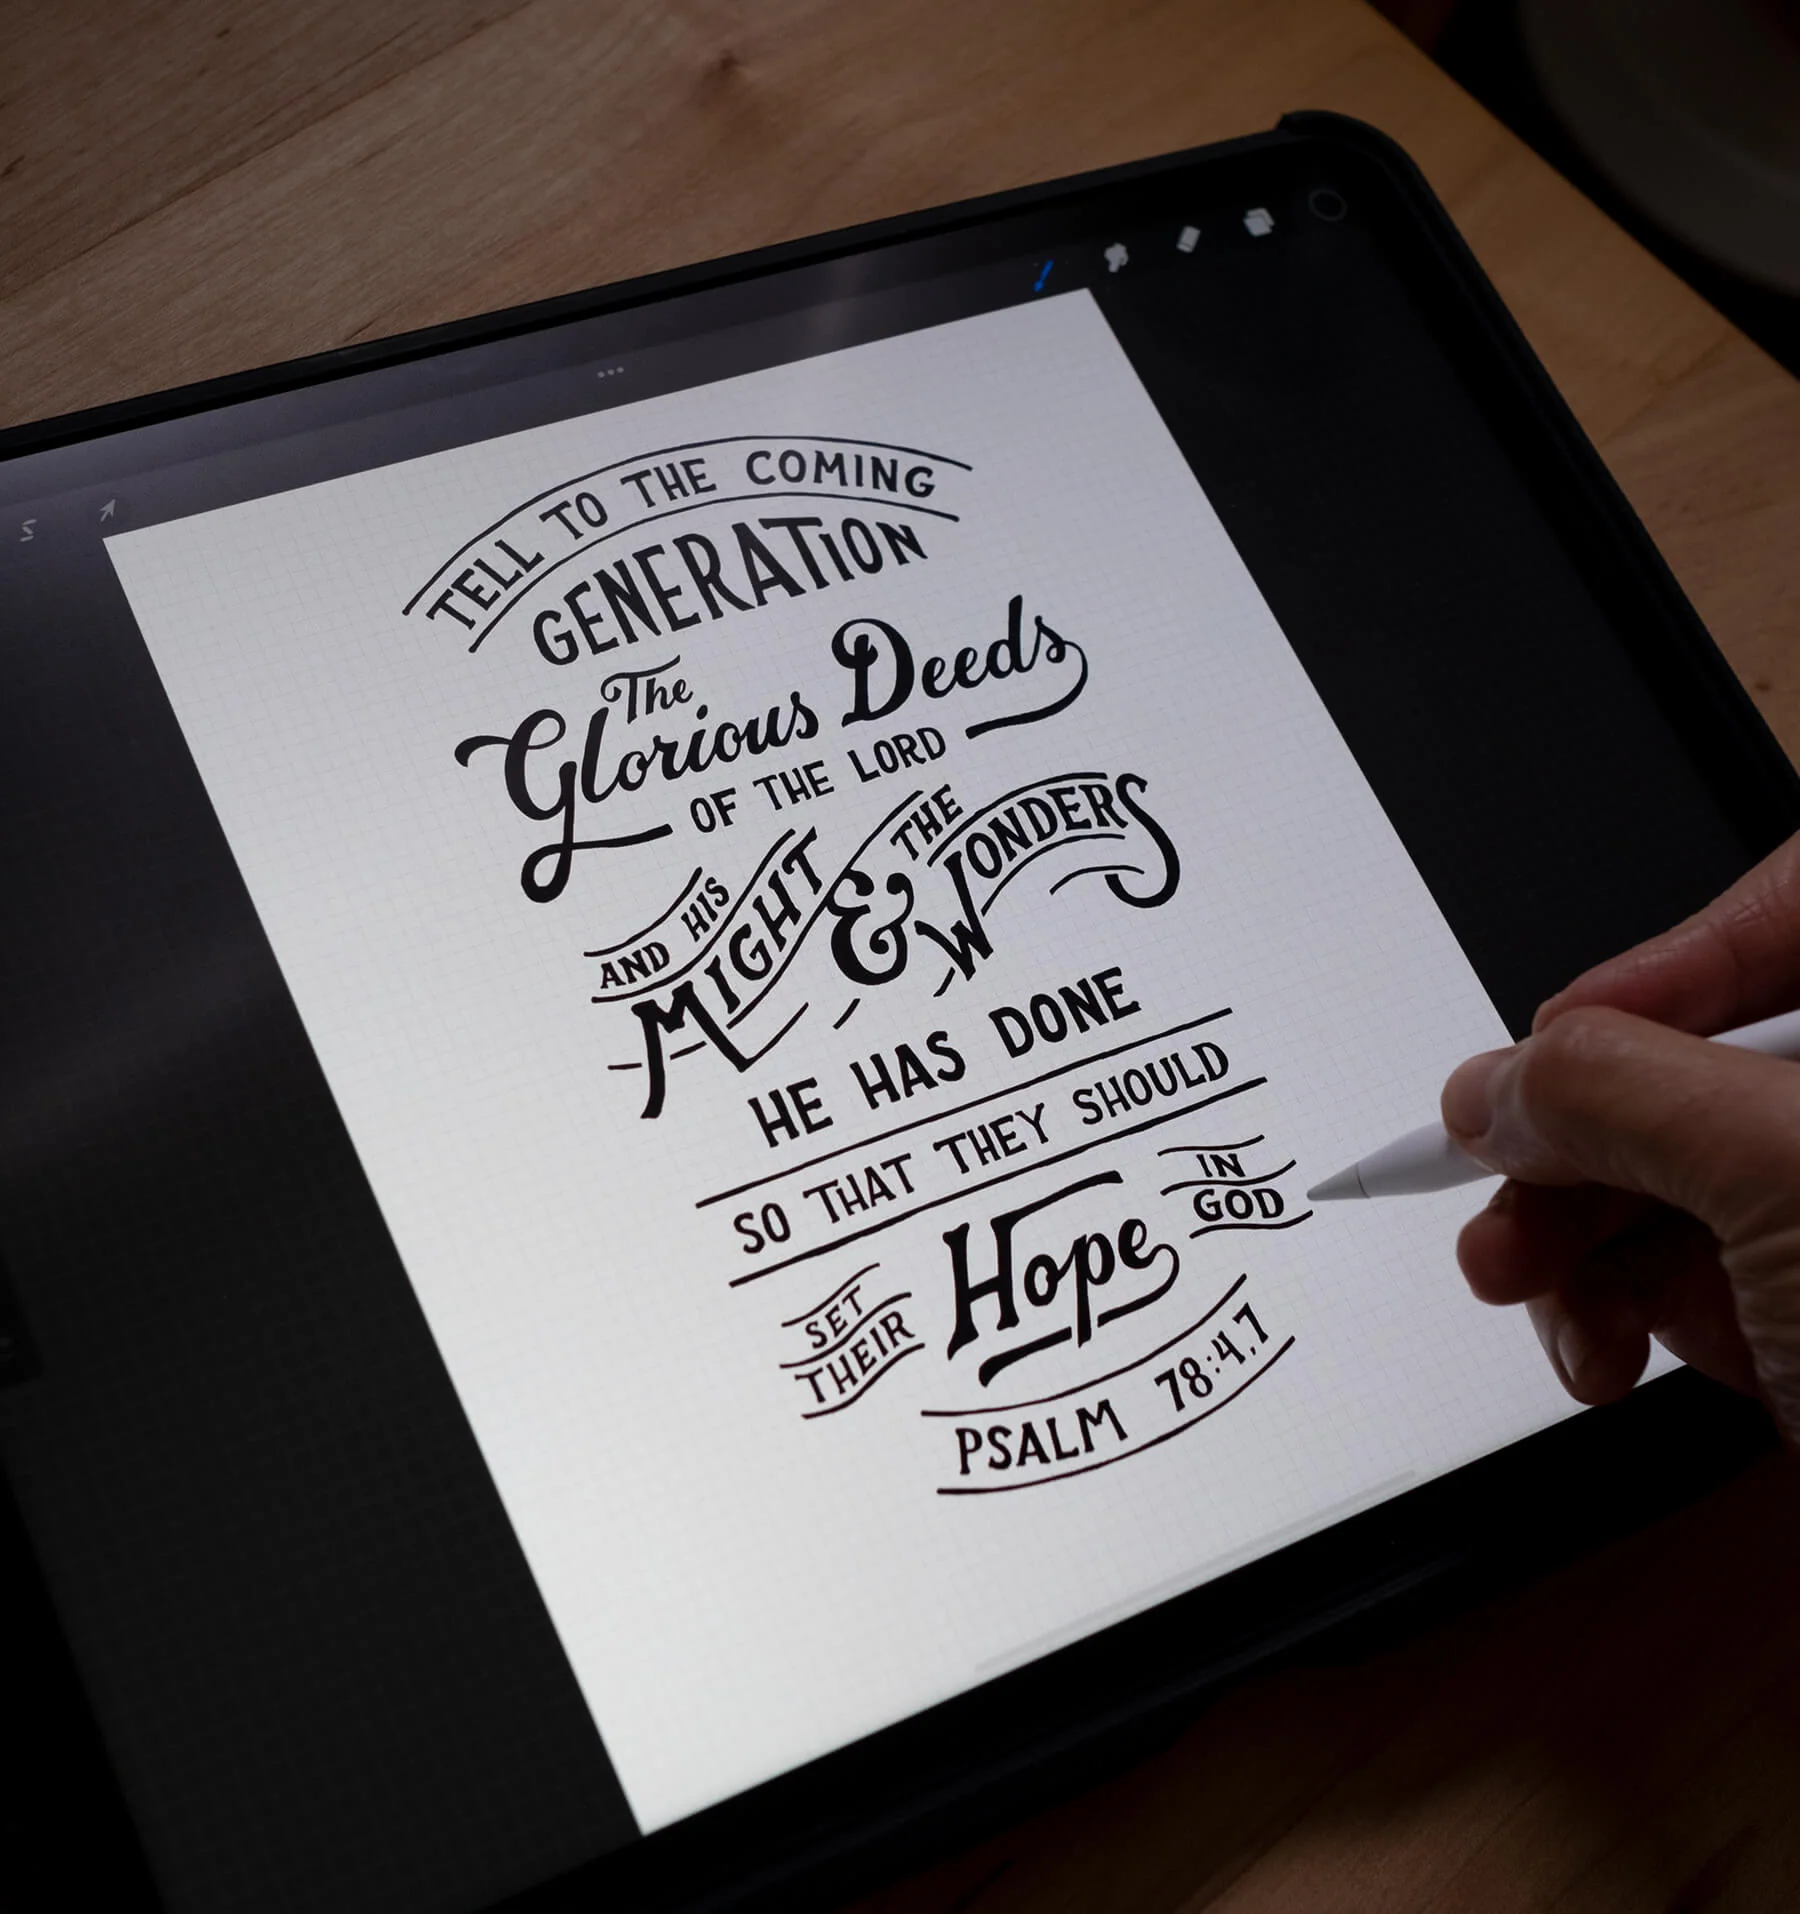 TELL TO THE COMING
GENERATION
The
Glorious Deeds
OF THE LORD
AND HIS
MIGHT & THE WONDERS
HE HAS DONE
SO THAT THEY SHOULD
SET THEIR
Hope
IN GOD
PSALM 78:4,7